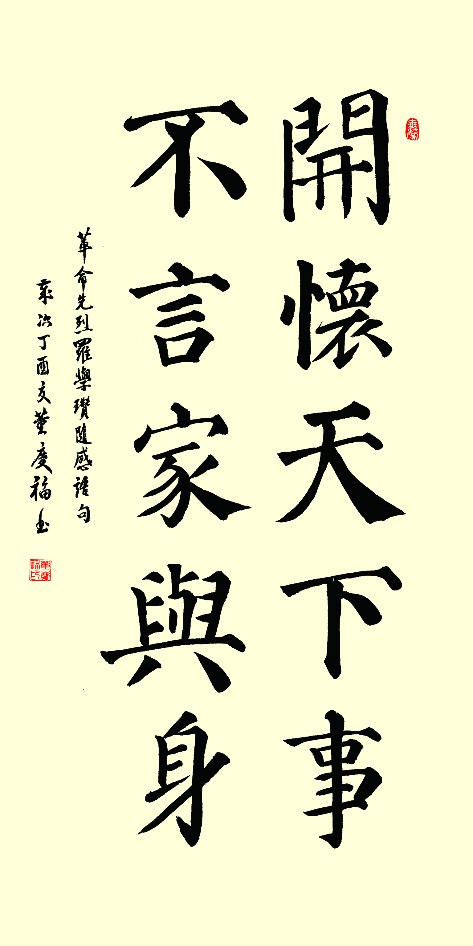 開懷天下事
不言家與身
革命先烈羅學瓚隨感語句
歲次丁酉夂董慶福书